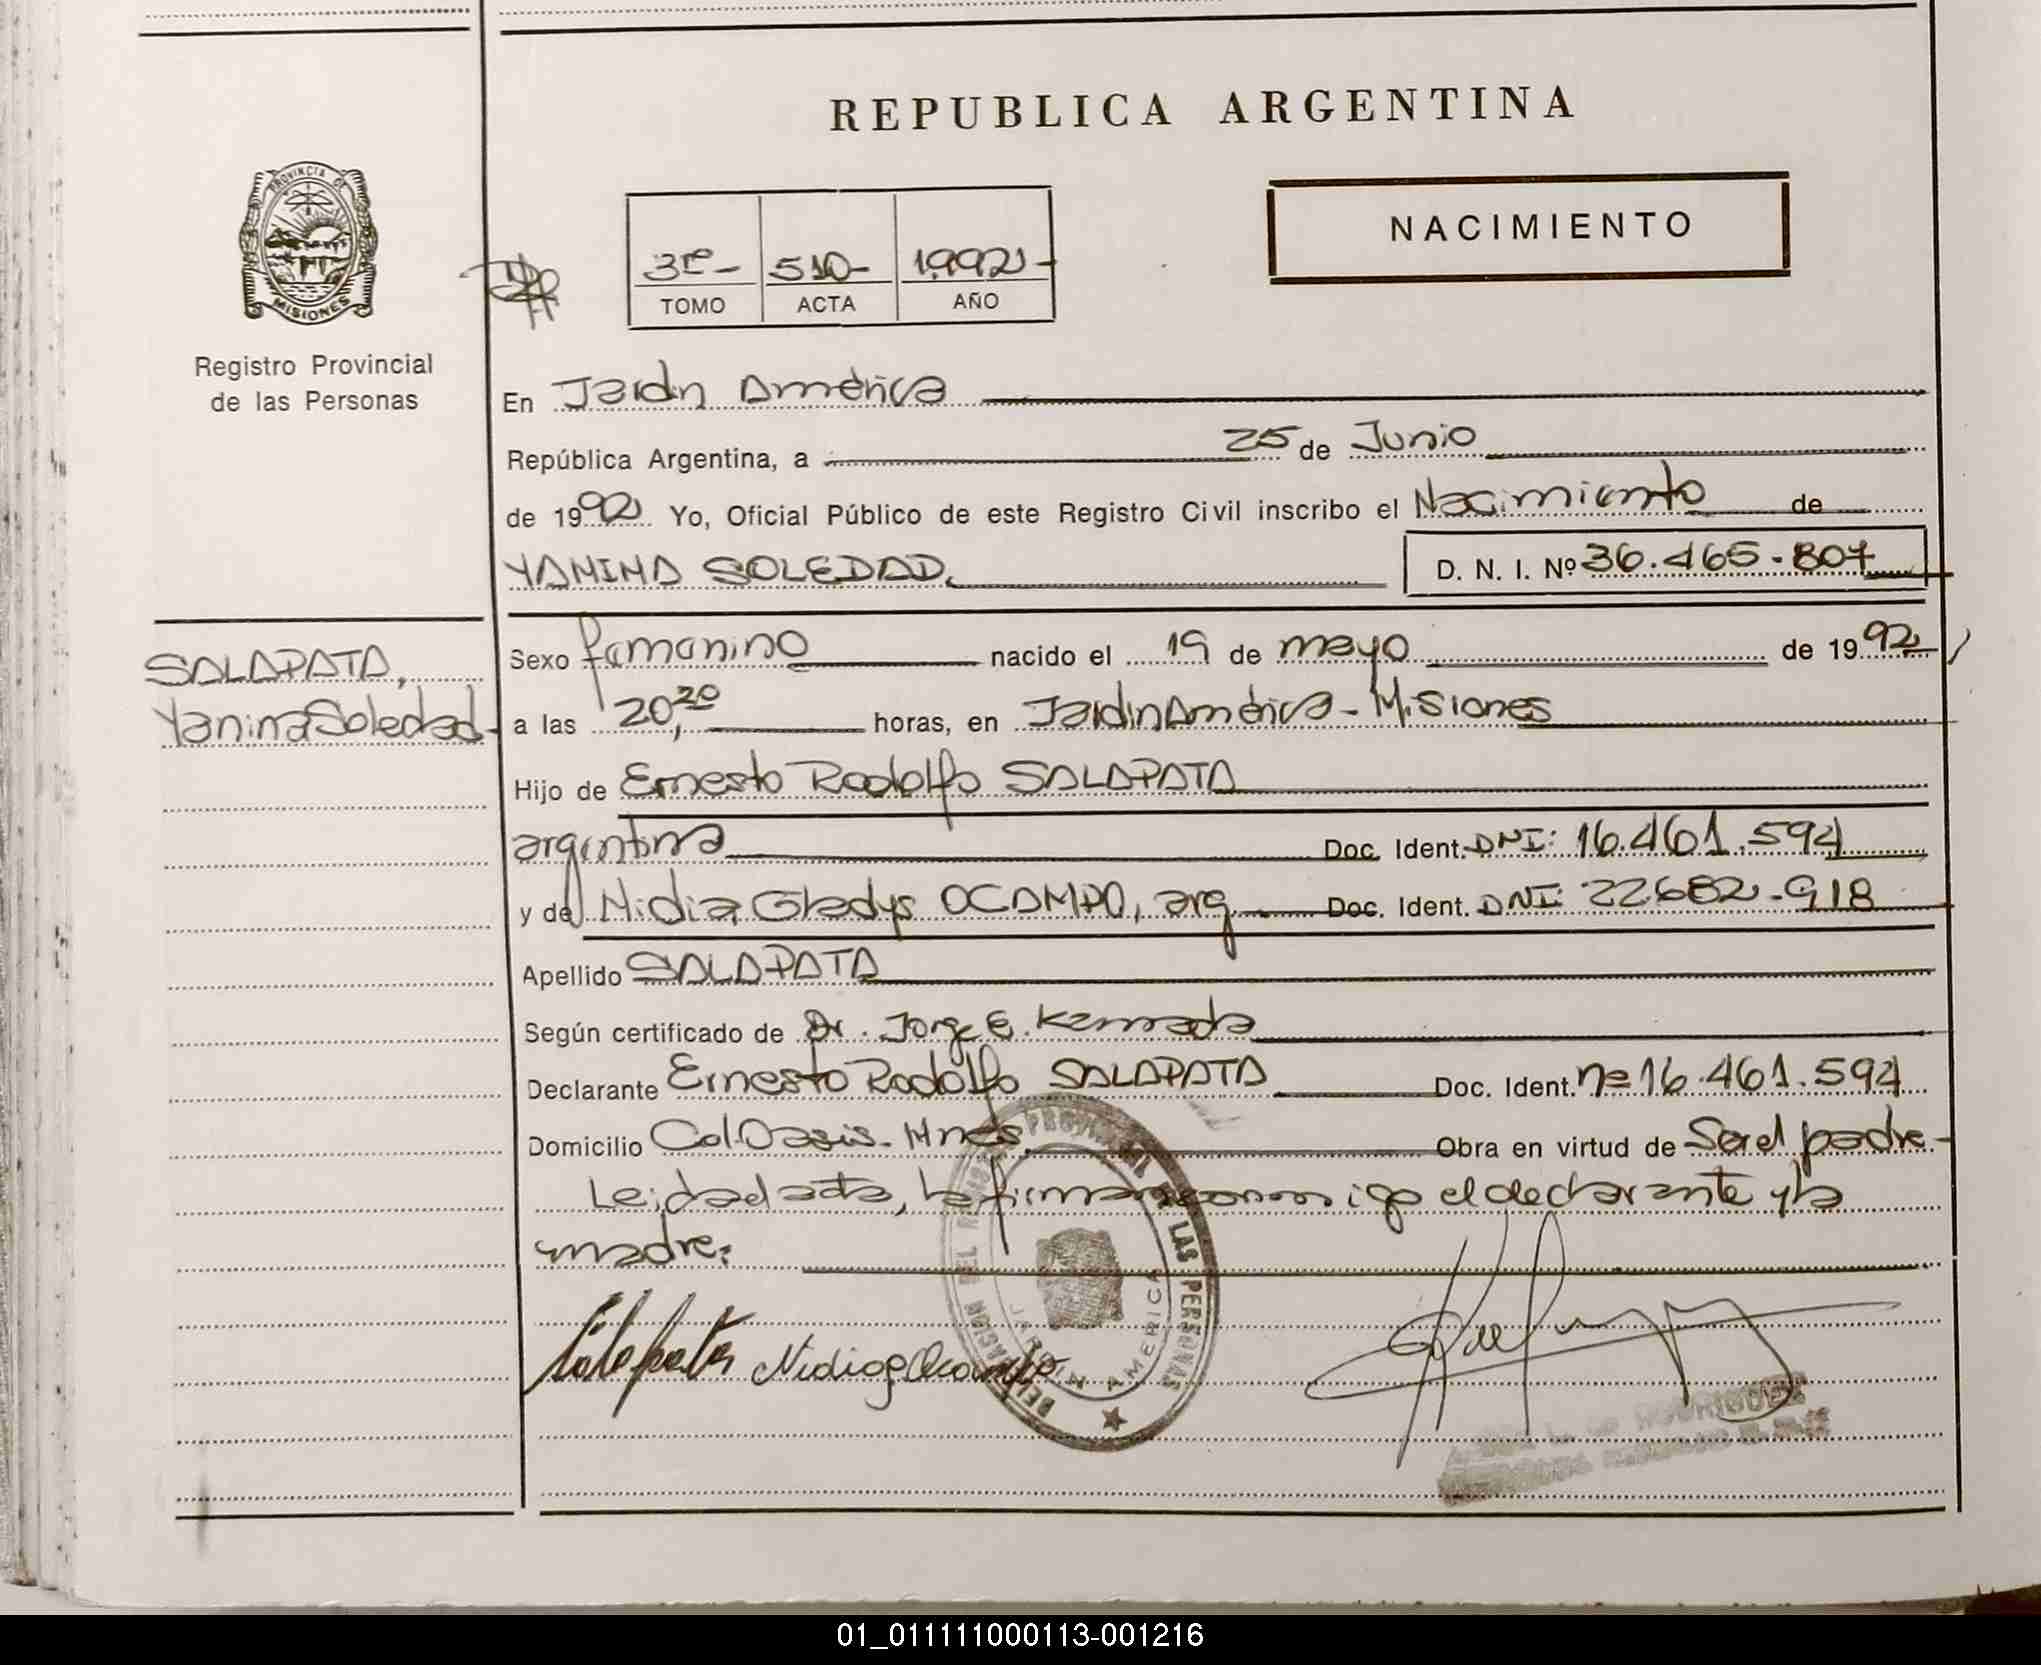 REPUBLICA ARGENTINA
PROVINCIA DE
MISIONES
Registro Provincial
de las Personas
NACIMIENTO
3ro- 510- 1992-
TOMO ACTA AÑO
En Jardín América
República Argentina, a 25 de Junio
de 1992 Yo, Oficial Público de este Registro Civil inscribo el Nacimiento de
YANINA SOLEDAD, D. N. I. Nº 36.465.807
SALAPATA,
Yanina Soledad
Sexo femenino nacido el 19 de mayo de 1992
a las 20,20 horas, en Jardín América - Misiones
Hijo de Ernesto Rodolfo SALAPATA
argentina Doc. Ident. DNI: 16.461.594
y de Nidia Gladys OCAMPO, arg. Doc. Ident. DNI: 22.682.918
Apellido SALAPATA
Según certificado de Dr. Jorge E.
Declarante Ernesto Rodolfo SALAPATA Doc. Ident. nº 16.461.594
Domicilio Col. Oasis. Mnes Obra en virtud de Ser el padre.-
Leída el acta, la firman conmigo el declarante y la
madre.
Salapata Nidia G Ocampo
DELEGACION DEL REGISTRO PROVINCIAL DE LAS PERSONAS
JARDIN AMERICA
RODRIGUEZ
01_011111000113-001216